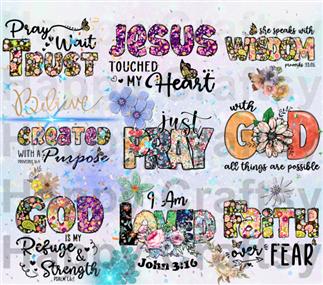 Pray
Wait
TRUST
JESUS
TOUCHED
MY Heart
she speaks with
WISDOM
proverbs 31:26
Believe
CREATED
WITH A Purpose
just
PRAY
with
GOD
all things are possible
GOD
IS MY
Refuge &
Strength
I Am
LOVED
John 3:16
FAITH
over FEAR